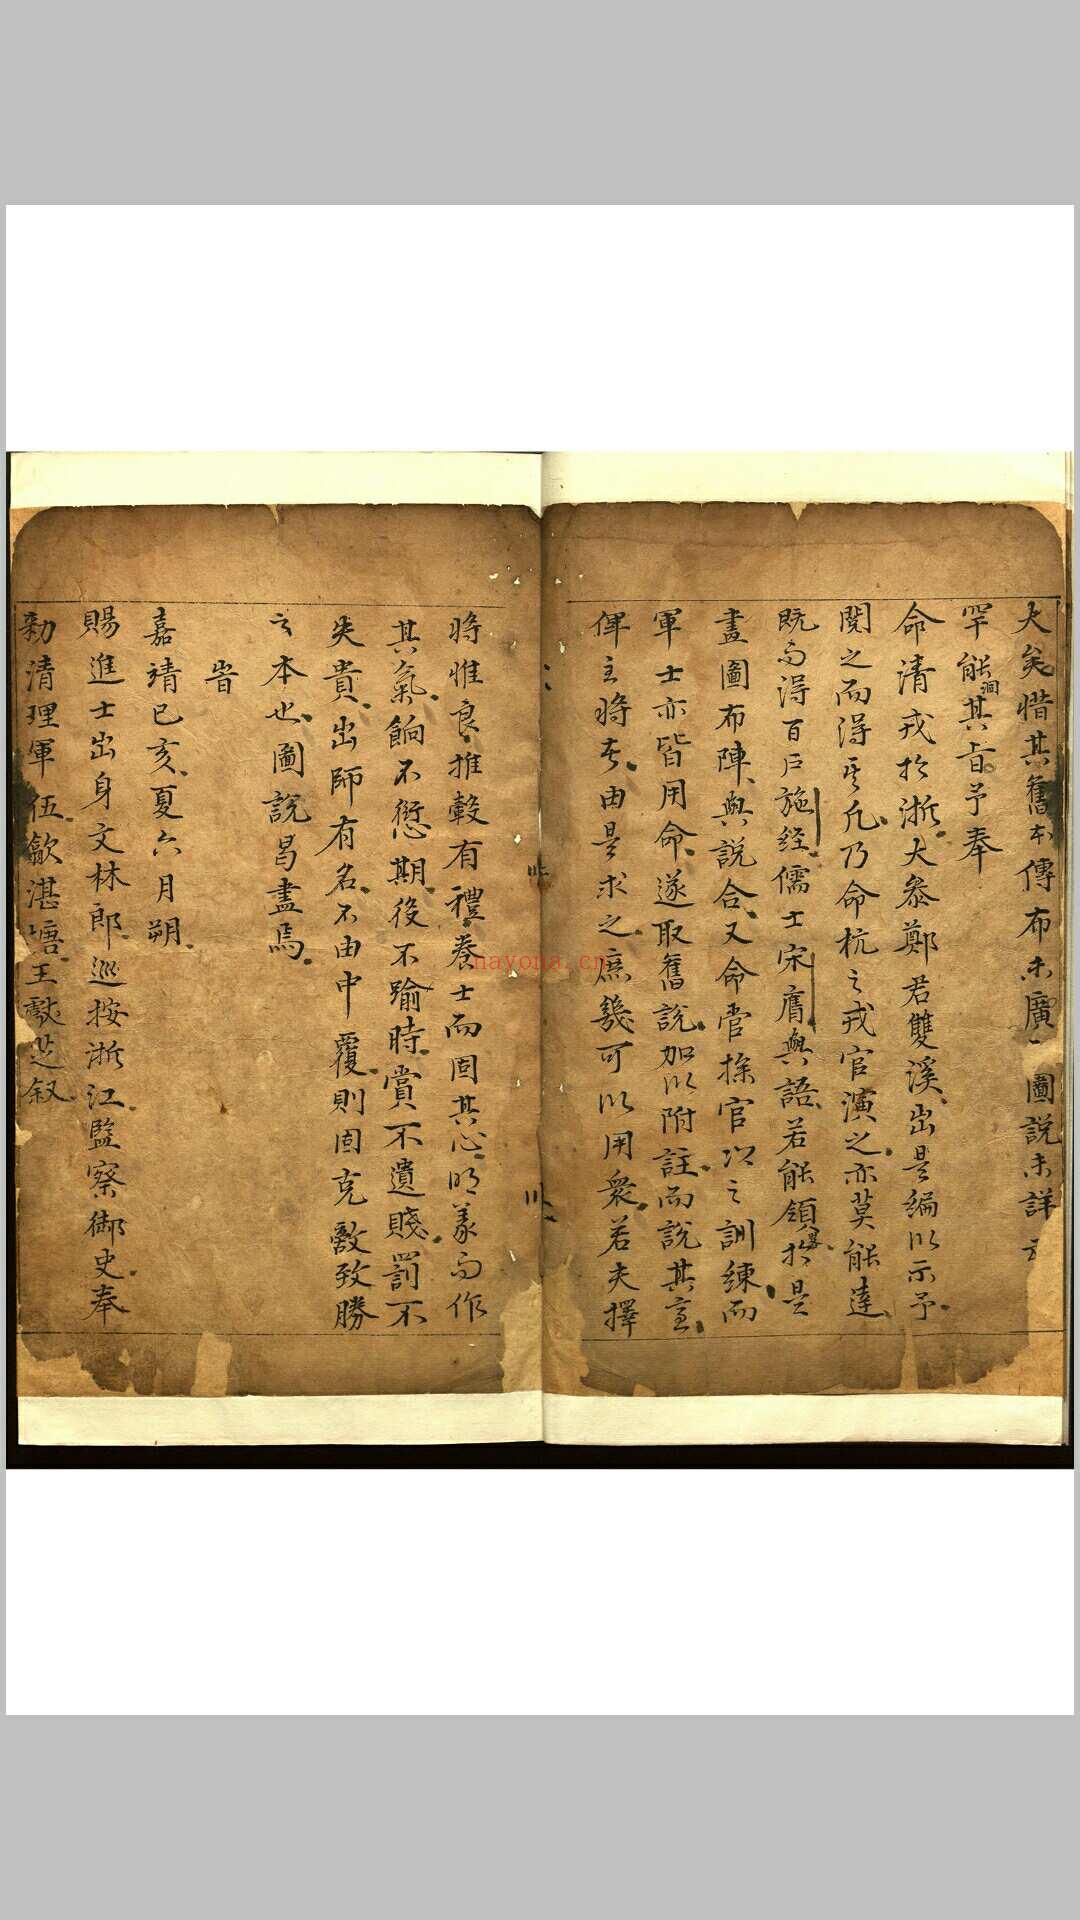 大矣惜其舊本傳布未廣圖說未詳
罕能洞其旨予奉
命清戎於浙大叅鄭君雙溪出是編以示予
閱之而得其凡乃命杭之戎官演之亦莫能達
既而得百户施經儒士宋膺與語若能領畧於是
畫圖布陣與說合又命官操官以之訓練而
軍士亦皆用命遂取舊說加以附註而說其意
俾主將者由是求之庶幾可以用衆若夫擇
將惟良推轂有禮養士而固其心明義而作
其氣餉不愆期役不踰時賞不遺賤罰不
失貴出師有名不由中覆則固克敵致勝
之本也圖說曷盡焉
旹
嘉靖己亥夏六月朔
賜進士出身文林郎巡按浙江監察御史奉
勑清理軍伍歙湛塘王叙
nayona.cn